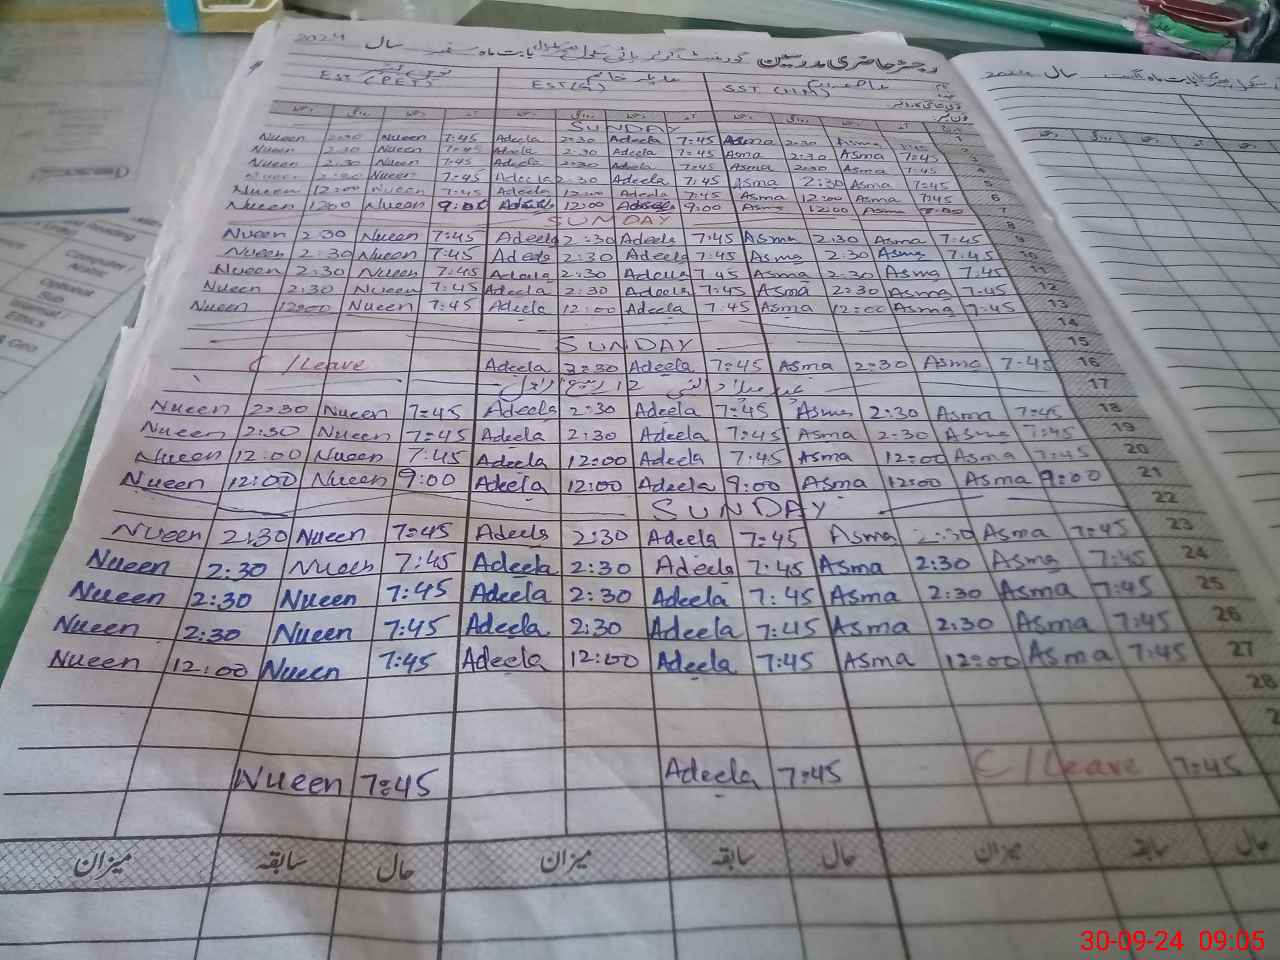 رجسٹر حاضری مدرسین بابت ماہ ستمبر سال 2024
EST (PET) EST (G) SST
SUNDAY
Nueen 2:30 Nueen 7:45 Adeela 2:30 Adeela 7:45 Asma 2:30 Asma 7:45 2
Nueen 2:30 Nueen 7:45 Adeela 2:30 Adeela 7:45 Asma 2:30 Asma 7:45 3
Nueen 2:30 Nueen 7:45 Adeela 2:30 Adeela 7:45 Asma 2:30 Asma 7:45 4
2:30 Nueen 7:45 Adeela 2:30 Adeela 7:45 Asma 2:30 Asma 7:45 5
Nueen 12:00 Nueen 7:45 Adeela 12:00 Adeela 7:45 Asma 12:00 Asma 7:45 6
Nueen 12:00 Nueen 9:00 Adeela 12:00 Adeela 9:00 Asma 12:00 Asma 7
SUNDAY 8
Nueen 2:30 Nueen 7:45 Adeela 2:30 Adeela 7:45 Asma 2:30 Asma 7:45 9
Nueen 2:30 Nueen 7:45 Adeela 2:30 Adeela 7:45 Asma 2:30 Asma 7:45 10
Nueen 2:30 Nueen 7:45 Adeela 2:30 Adeela 7:45 Asma 2:30 Asma 7:45 11
Nueen 2:30 Nueen 7:45 Adeela 2:30 Adeela 7:45 Asma 2:30 Asma 7:45 12
Nueen 12:00 Nueen 7:45 Adeela 12:00 Adeela 7:45 Asma 12:00 Asma 7:45 13
14
SUNDAY 15
C/Leave Adeela 2:30 Adeela 7:45 Asma 2:30 Asma 7:45 16
عید میلاد النبی 12 ربیع الاول 17
Nueen 2:30 Nueen 7:45 Adeela 2:30 Adeela 7:45 Asma 2:30 Asma 7:45 18
Nueen 2:30 Nueen 7:45 Adeela 2:30 Adeela 7:45 Asma 2:30 Asma 7:45 19
Nueen 12:00 Nueen 7:45 Adeela 12:00 Adeela 7:45 Asma 12:00 Asma 7:45 20
Nueen 12:00 Nueen 9:00 Adeela 12:00 Adeela 9:00 Asma 12:00 Asma 9:00 21
SUNDAY 22
Nueen 2:30 Nueen 7:45 Adeela 2:30 Adeela 7:45 Asma 2:30 Asma 7:45 23
Nueen 2:30 Nueen 7:45 Adeela 2:30 Adeela 7:45 Asma 2:30 Asma 7:45 24
Nueen 2:30 Nueen 7:45 Adeela 2:30 Adeela 7:45 Asma 2:30 Asma 7:45 25
Nueen 2:30 Nueen 7:45 Adeela 2:30 Adeela 7:45 Asma 2:30 Asma 7:45 26
Nueen 12:00 Nueen 7:45 Adeela 12:00 Adeela 7:45 Asma 12:00 Asma 7:45 27
28
Nueen 7:45 Adeela 7:45 C/Leave 7:45
حال سابقہ میزان حال سابقہ میزان حال سابقہ میزان
30-09-24 09:05